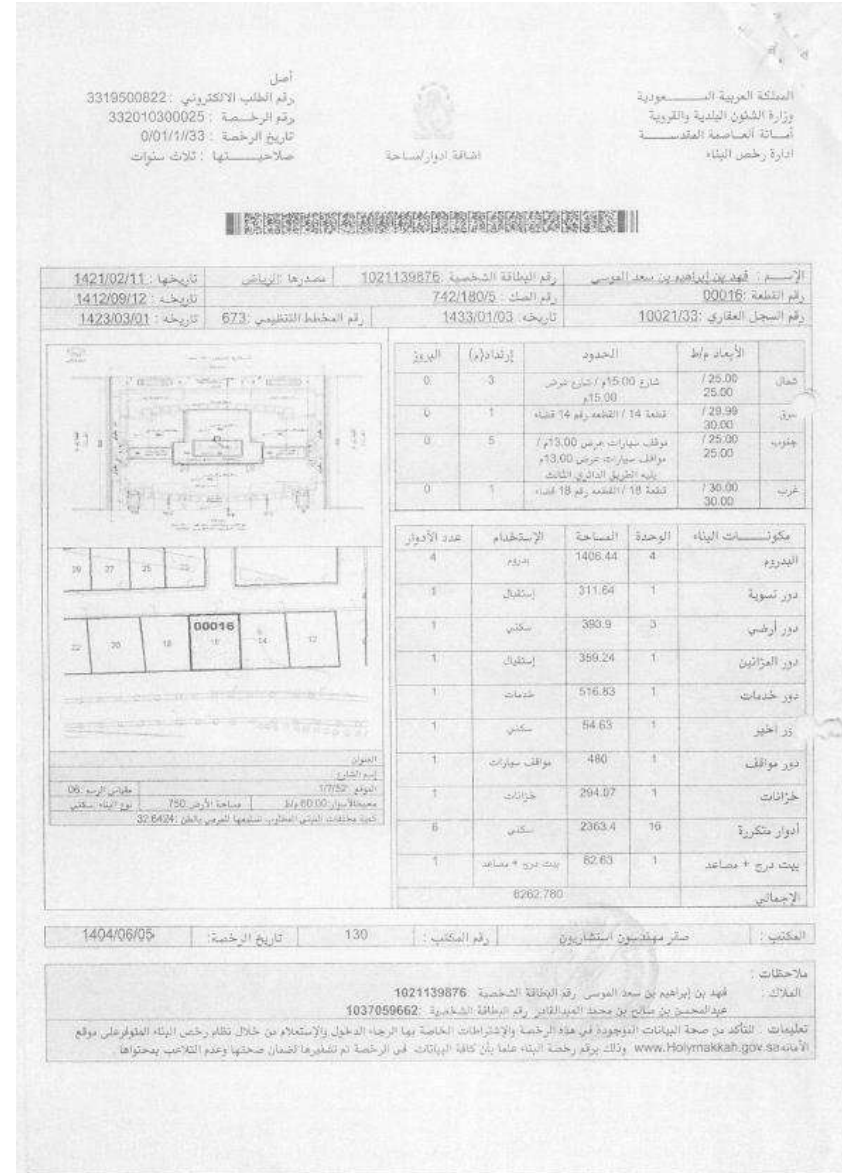 المملكة العربية الســـعودية
وزارة الشئون البلدية والقروية
أمــانة العــاصمة المقدســـة
ادارة رخص البناء
اضافة ادوار/مساحة
أصل
رقم الطلب الالكتروني : 3319500822
رقم الرخـصـة : 332010300025
تاريخ الرخصة : 0/01/1//33
صلاحيـــتها : ثلاث سنوات
الإســـم : فهد بن إبراهيم بن سعد الموسى رقم البطاقة الشخصية :1021139876 مصدرها :الرياض تاريخها : 1421/02/11
رقم القطعة :00016 رقم الصك : 742/180/5 تاريخه : 1412/09/12
رقم السجل العقاري :10021/33 تاريخه: 1433/01/03 رقم المخطط التنظيمي :673 تاريخه : 1423/03/01
الأبعاد م/ط الحدود إرتداد(م) البروز
شمال 25.00 / 25.00 شارع 15.00م / شارع عرض 15.00م 3 0
شرق 29.99 / 30.00 قطعة 14 / القطعه رقم 14 فضاء 1 0
جنوب 25.00 / 25.00 موقف سيارات عرض 13.00م / مواقف سيارات عرض 13.00م يليه الطريق الدائري الثالث 5 0
غرب 30.00 / 30.00 قطعة 18 / القطعه رقم 18 فضاء 1 0
مكونـــات البناء الوحدة المساحة الإستخدام عدد الأدوار
البدروم 4 1406.44 بدروم 4
دور تسوية 1 311.64 إستقبال 1
دور أرضي 3 393.9 سكني 1
دور الميزانين 1 359.24 إستقبال 1
دور خدمات 1 516.83 خدمات 1
دور اخير 1 54.63 سكني 1
دور مواقف 1 480 مواقف سيارات 1
خزانات 1 294.07 خزانات 1
أدوار متكررة 16 2363.4 سكني 6
بيت درج + مصاعد 1 82.63 بيت درج + مصاعد 1
الإجمالي 6262.780
29 27 25 23
00016
22 20 18 16 14 12
العنوان
إسم الشارع
الموقع :1/7/52 مقياس الرسم :06
محيط الأسوار :60.00 م/ط مساحة الأرض :750 نوع البناء :سكني
كمية مخلفات المباني المطلوب تسليمها للمرمى بالطن :32.6424
المكتب : صقر مهندسون استشاريون رقم المكتب : 130 تاريخ الرخصة: 1404/06/05
ملاحظات :
الملاك : فهد بن إبراهيم بن سعد الموسى رقم البطاقة الشخصية :1021139876
عبدالمحسن بن صالح بن محمد العبدالقادر رقم البطاقة الشخصية :1037059662
تعليمات : للتأكد من صحة البيانات الموجودة في هذه الرخصة والإشتراطات الخاصة بها الرجاء الدخول والإستعلام من خلال نظام رخص البناء المتوفر على موقع
الأمانة www.Holymakkah.gov.sa وذلك برقم رخصة البناء علما بأن كافة البيانات في الرخصة تم تشفيرها لضمان صحتها وعدم التلاعب بمحتواها